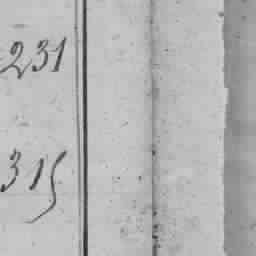 231
315